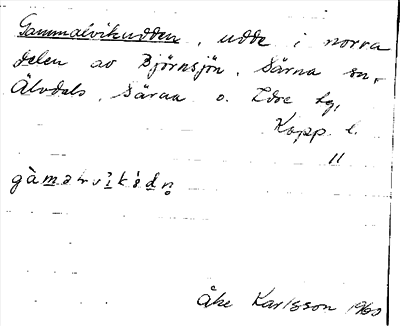 Gammalvikudden, udde i norra
delen av Björnsjön, Särna sn,
Älvdals, Särna o. Idre tg,
Kopp. l.
11
Åke Karlsson 1960